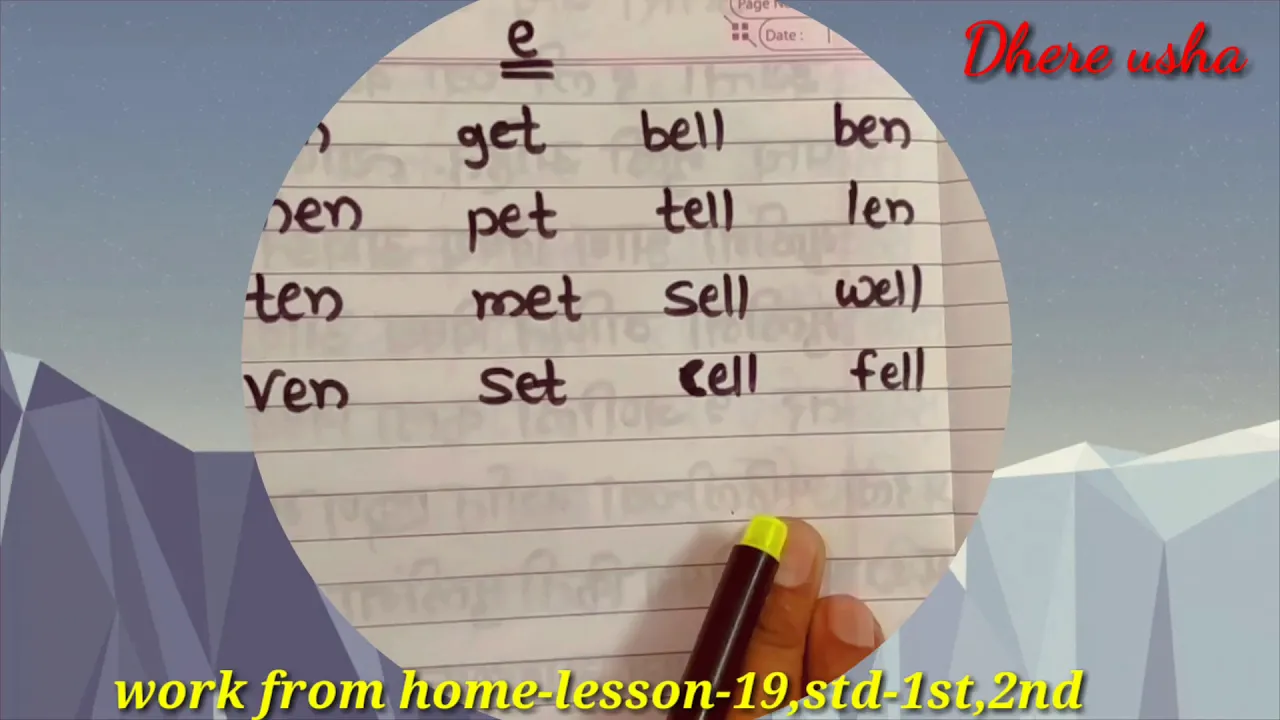 Page No
Date :
Dhere usha
e
get bell ben
pet tell len
ten met sell well
ven set cell fell
work from home-lesson-19,std-1st,2nd